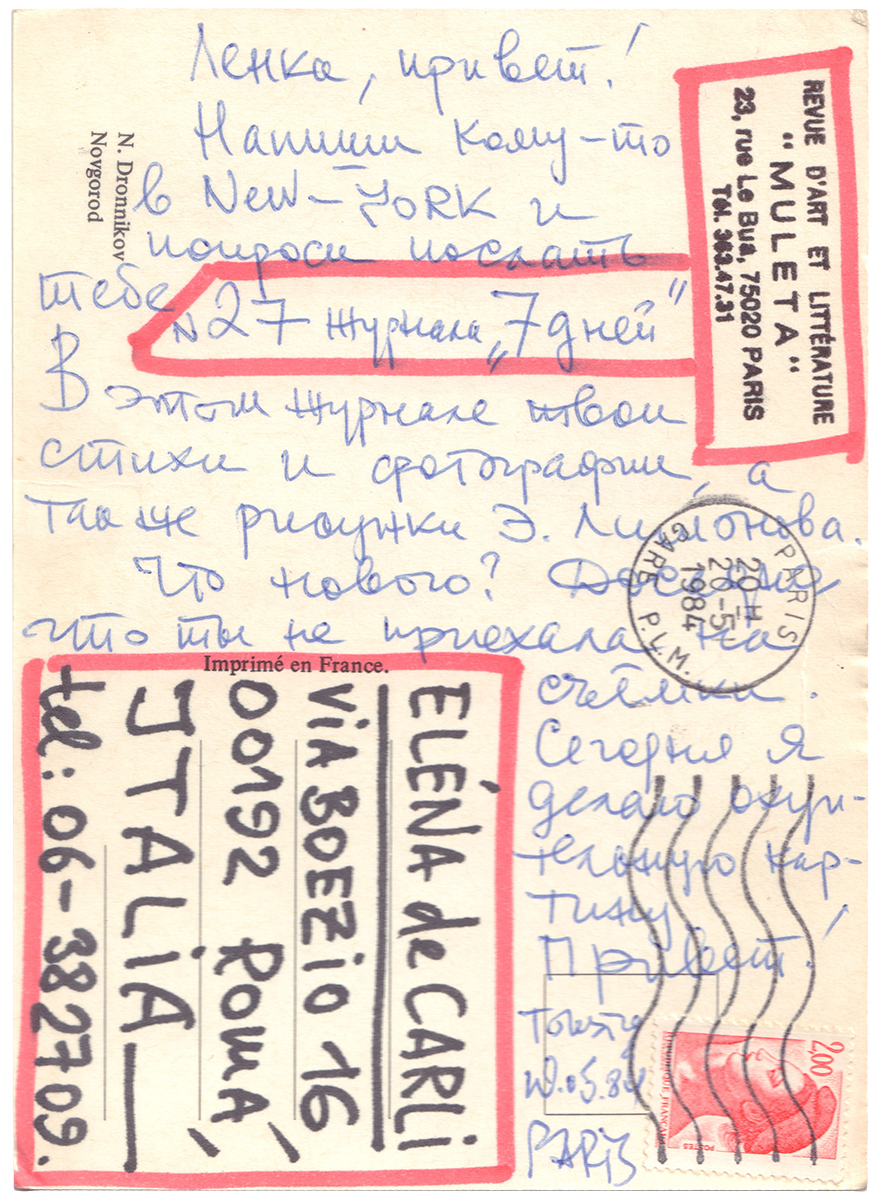 Ленка, привет!
Напиши кому-то
в NEW-YORK и
попроси послать
тебе
N27 журнала „7 дней”
В этом журнале твои
стихи и фотографии, а
так же рисунки Э. Лимонова.
Что нового? Досадно
что ты не приехала на
съёмки.
Сегодня я
делаю охуи-
тельную кар-
тину!
Привет!
05.84
PARIS
N. Dronnikov
Novgorod
REVUE D'ART ET LITTÉRATURE
“MULETA“
23, rue Le Bua, 75020 PARIS
Tél. 363.47.31
PARIS
20 H
20-5
1984
GARE P.L.M.
Imprimé en France.
ELÉNA de CARLi
ViA BOEZiO 16
00192 ROMA,
ITALiA
tel: 06-382709.
2,00
RÉPUBLIQUE FRANÇAISE
POSTES